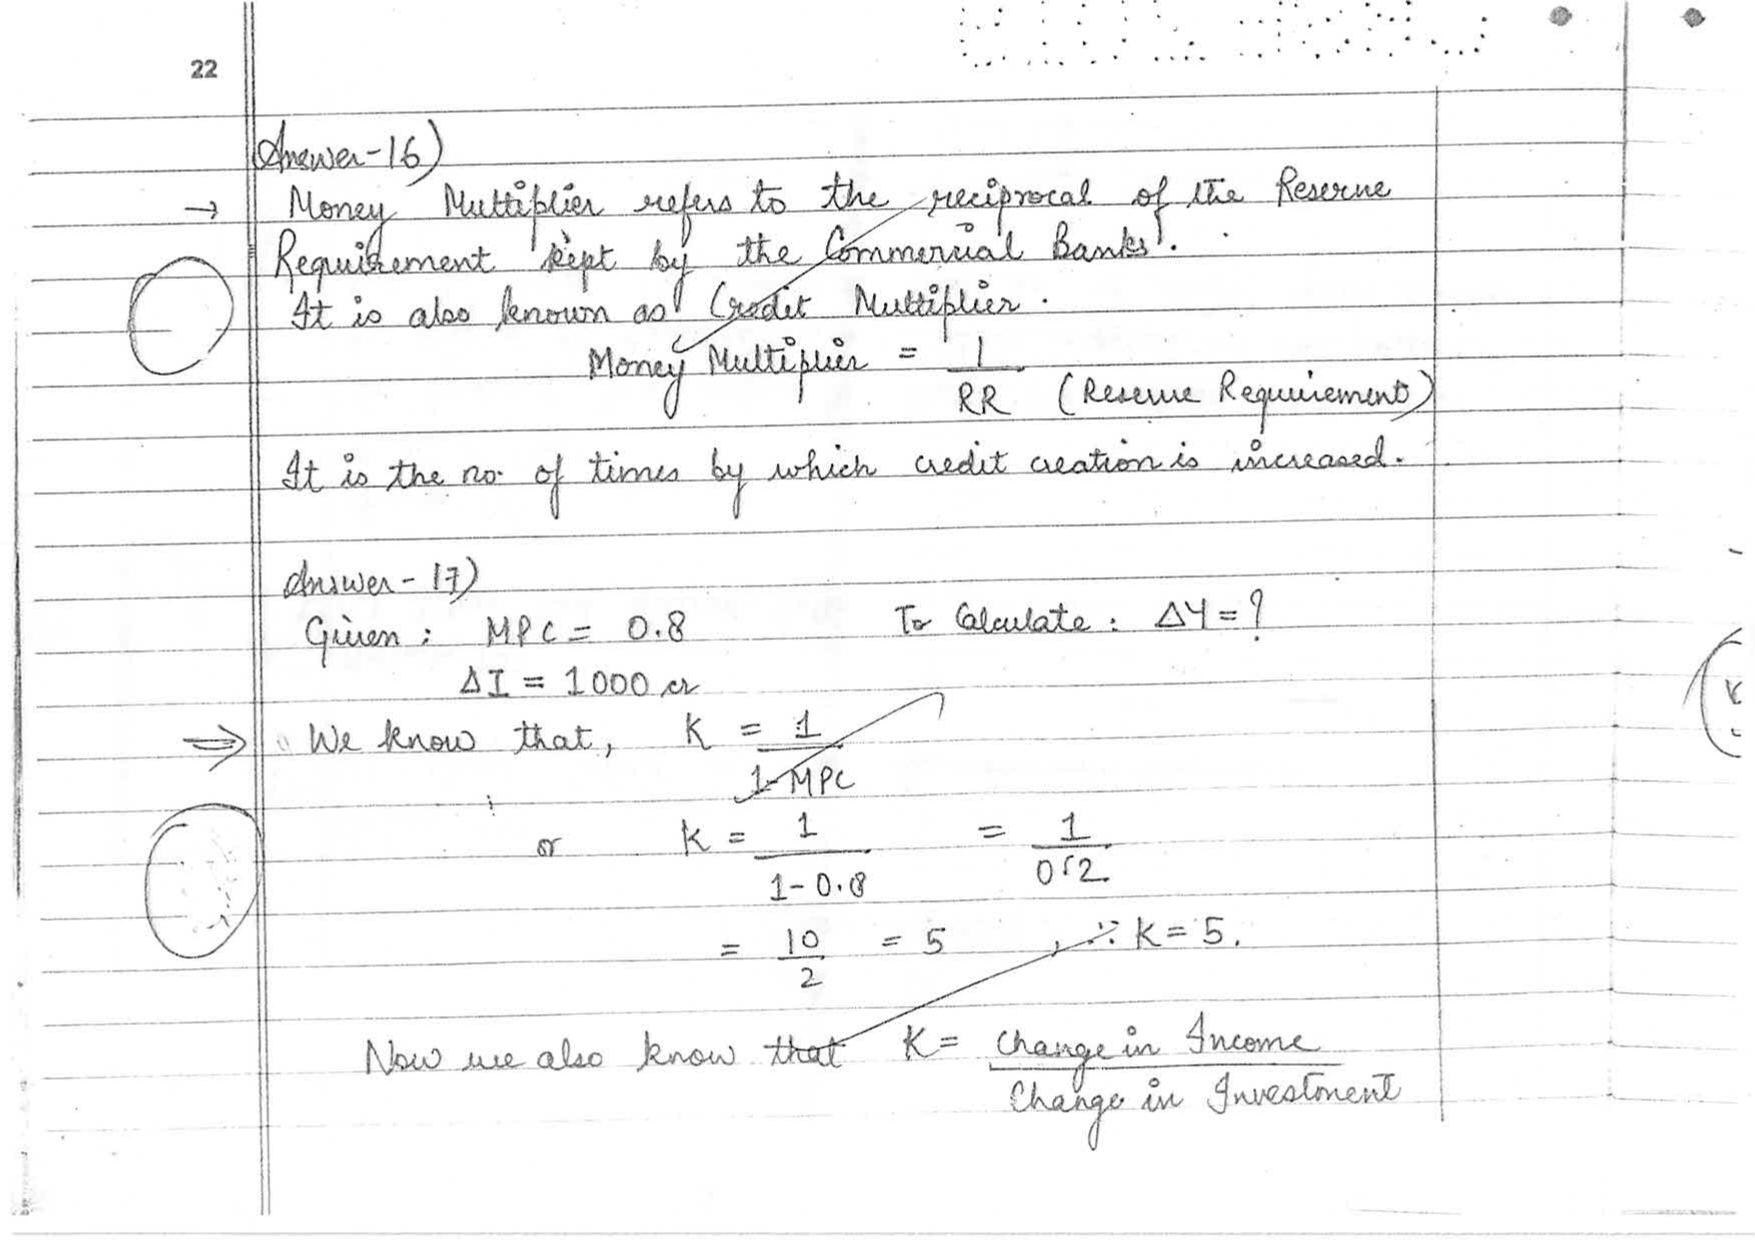 22
Answer-16)
→ Money Multiplier refers to the reciprocal of the Reserve
Requirement kept by the Commercial Banks.
It is also known as Credit Multiplier.
Money Multiplier = 1/RR (Reserve Requirement)
It is the no. of times by which credit creation is increased.
Answer-17)
Given: MPC = 0.8 To Calculate: ΔY = ?
ΔI = 1000 cr
⇒ We know that, K = 1/1-MPC
or K = 1/1-0.8 = 1/0.2
= 10/2 = 5 , ∴ K = 5.
Now we also know that K = Change in Income/Change in Investment